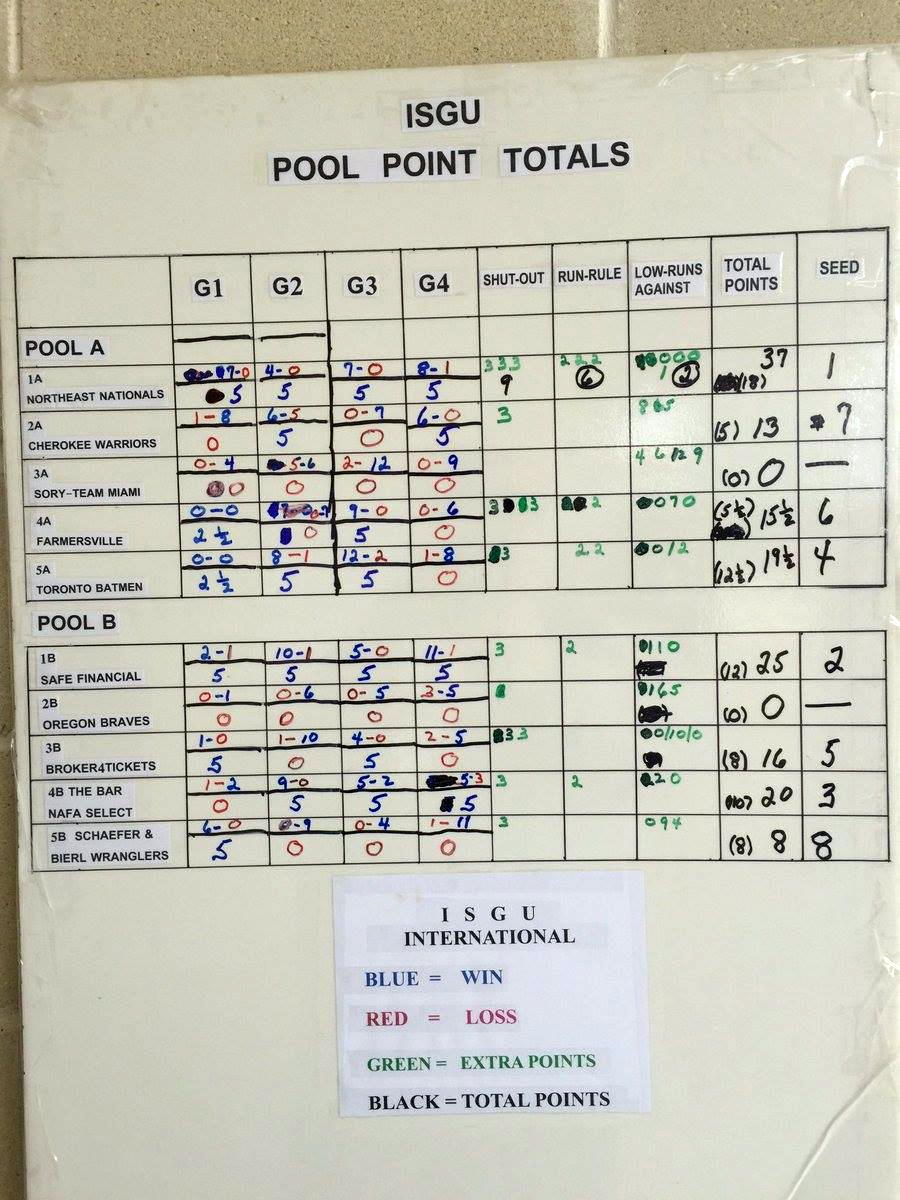 ISGU
POOL POINT TOTALS
G1 G2 G3 G4 SHUT-OUT RUN-RULE LOW-RUNS AGAINST TOTAL POINTS SEED
POOL A
1A 7-0 4-0 7-0 8-1 3 3 3 2 2 2 0 0 0 37 1
NORTHEAST NATIONALS 5 5 5 5 9 6 1 2 (18)
2A 1-8 6-5 0-7 6-0 3 8 (5) 13 7
CHEROKEE WARRIORS 0 5 0 5
3A 0-4 5-6 2-12 0-9 4 6 12 9 (0) 0 —
SORY-TEAM MIAMI 0 0 0 0
4A 0-0 0-7 9-0 0-6 3 3 2 0 7 0 (5½) 15½ 6
FARMERSVILLE 2½ 0 5 0
5A 0-0 8-1 12-2 1-8 3 2 2 0 1 2 (12½) 19½ 4
TORONTO BATMEN 2½ 5 5 0
POOL B
1B 2-1 10-1 5-0 11-1 3 2 1 1 0 (12) 25 2
SAFE FINANCIAL 5 5 5 5
2B 0-1 0-6 0-5 3-5 1 6 5 (0) 0 —
OREGON BRAVES 0 0 0 0
3B 1-0 1-10 4-0 2-5 3 3 0/10/0 (8) 16 5
BROKER4TICKETS 5 0 5 0
4B THE BAR 1-2 9-0 5-2 5-3 3 2 2 0 (10) 20 3
NAFA SELECT 0 5 5 5
5B SCHAEFER & 6-0 0-9 0-4 1-11 3 0 9 4 (8) 8 8
BIERL WRANGLERS 5 0 0 0
I S G U
INTERNATIONAL
BLUE = WIN
RED = LOSS
GREEN = EXTRA POINTS
BLACK = TOTAL POINTS